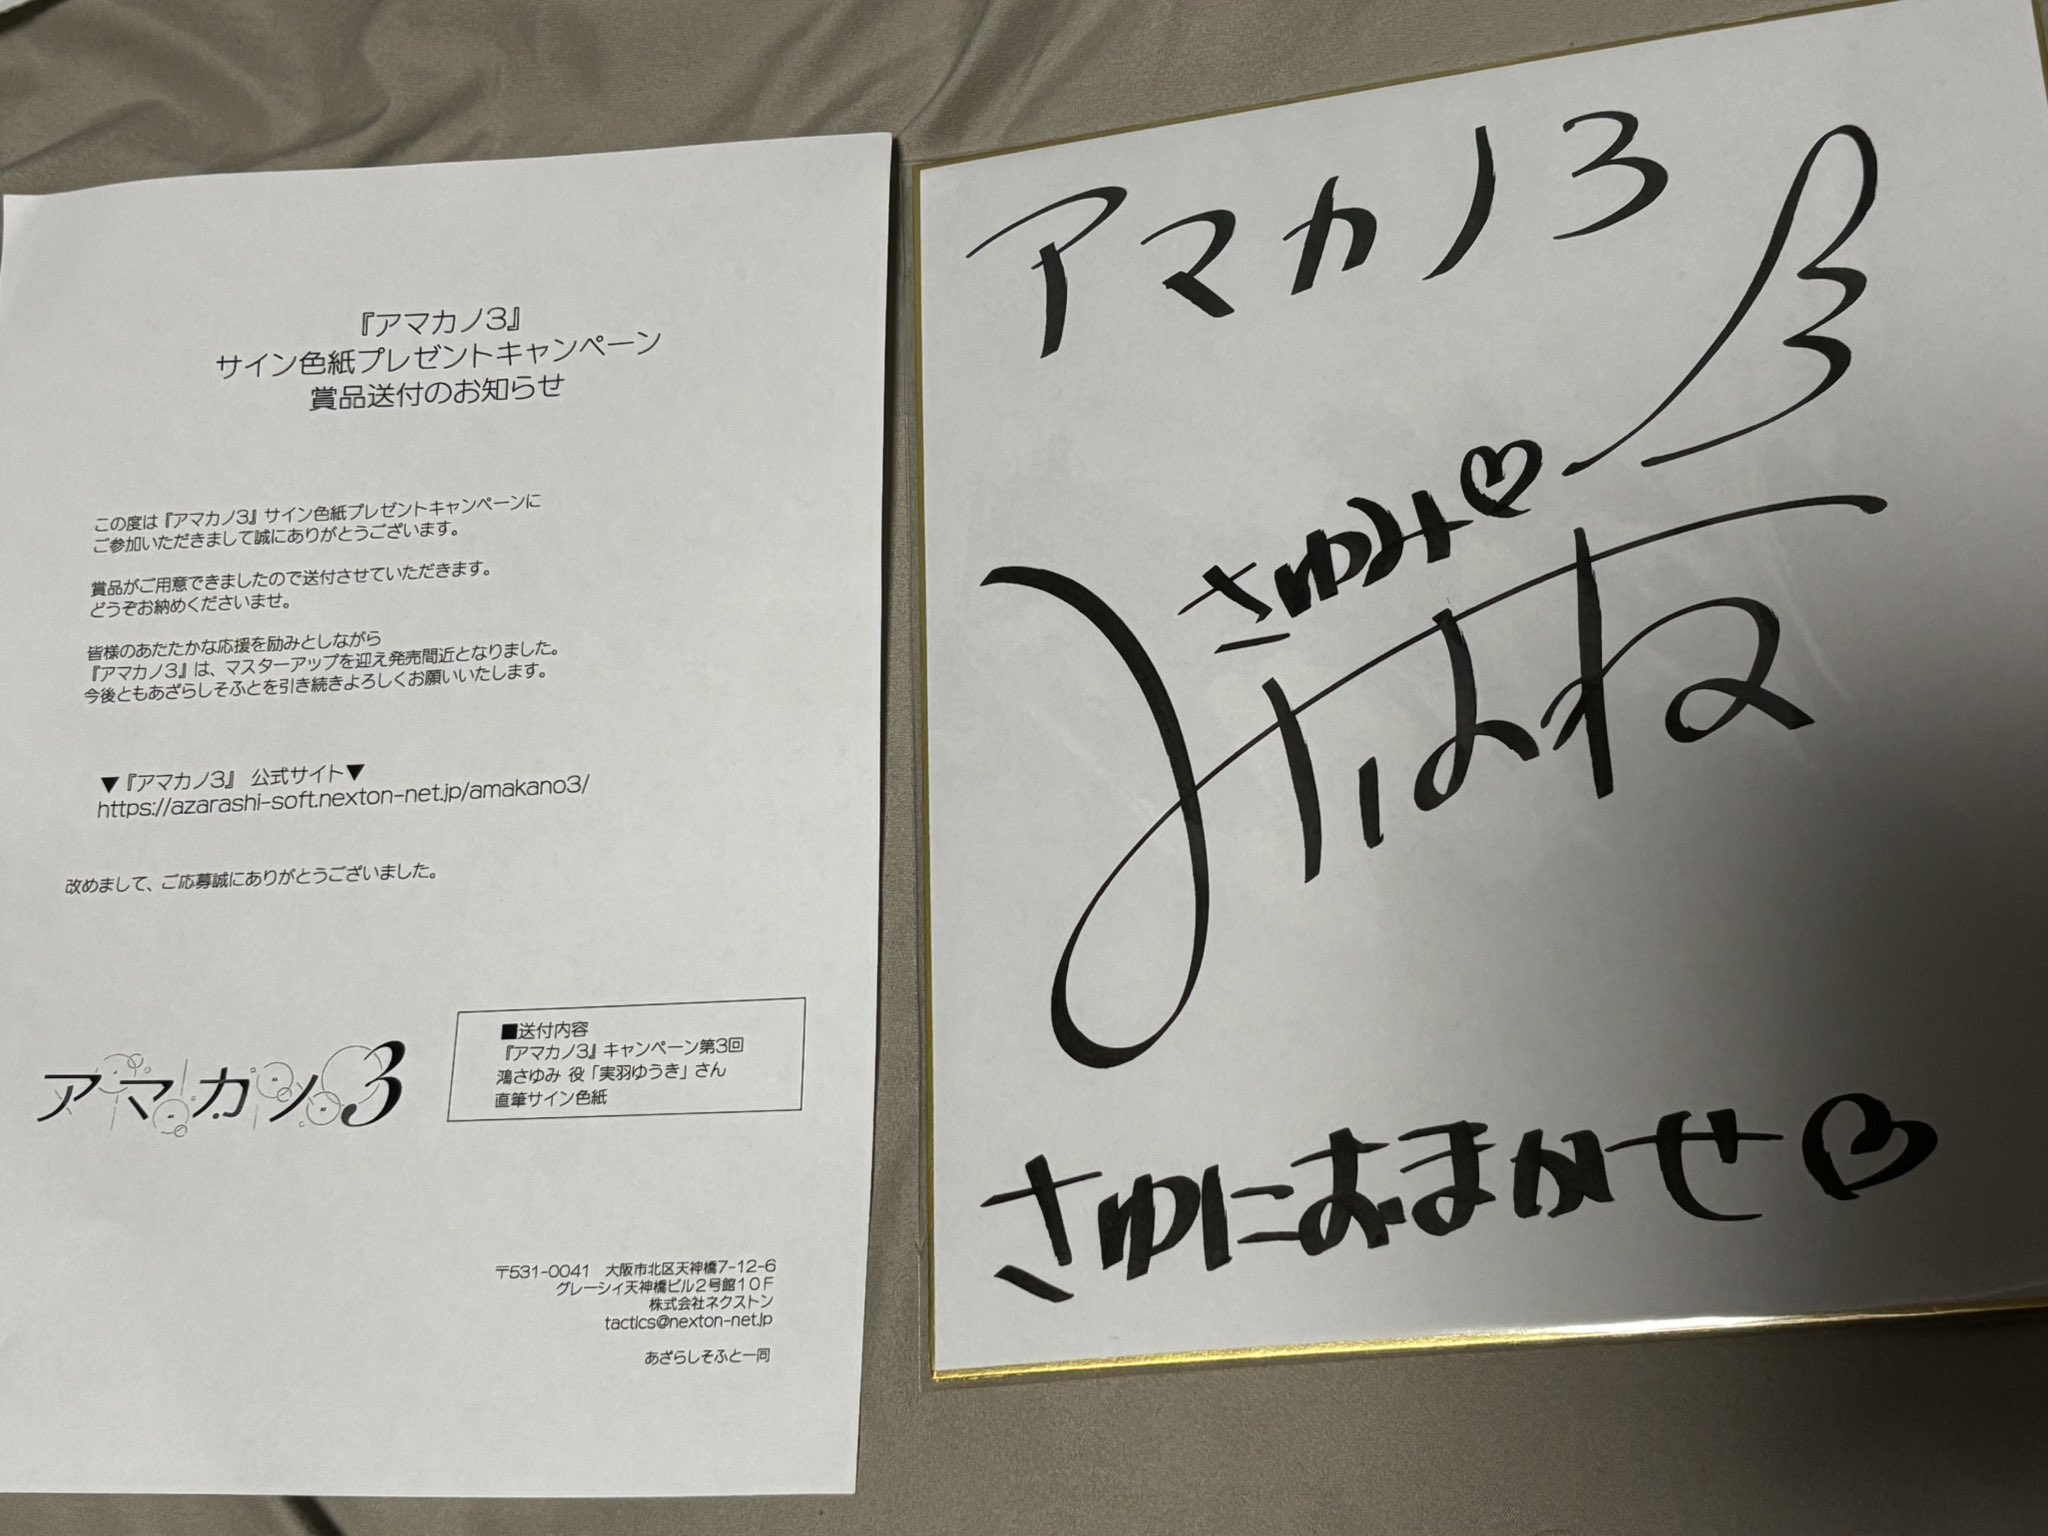 『アマカノ3』
サイン色紙プレゼントキャンペーン
賞品送付のお知らせ
この度は『アマカノ3』サイン色紙プレゼントキャンペーンに
ご参加いただきまして誠にありがとうございます。
賞品がご用意できましたので送付させていただきます。
どうぞお納めくださいませ。
皆様のあたたかな応援を励みとしながら
『アマカノ3』は、マスターアップを迎え発売間近となりました。
今後ともあざらしそふとを引き続きよろしくお願いいたします。
▼『アマカノ3』 公式サイト▼
https://azarashi-soft.nexton-net.jp/amakano3/
改めまして、ご応募誠にありがとうございました。
アマカノ3
■送付内容
『アマカノ3』キャンペーン第3回
鴻さゆみ 役「実羽ゆうき」さん
直筆サイン色紙
〒531-0041 大阪市北区天神橋7-12-6
グレーシィ天神橋ビル2号館10F
株式会社ネクストン
tactics@nexton-net.jp
あざらしそふと一同
アマカノ3
さゆみ♡
さゆにおまかせ♡